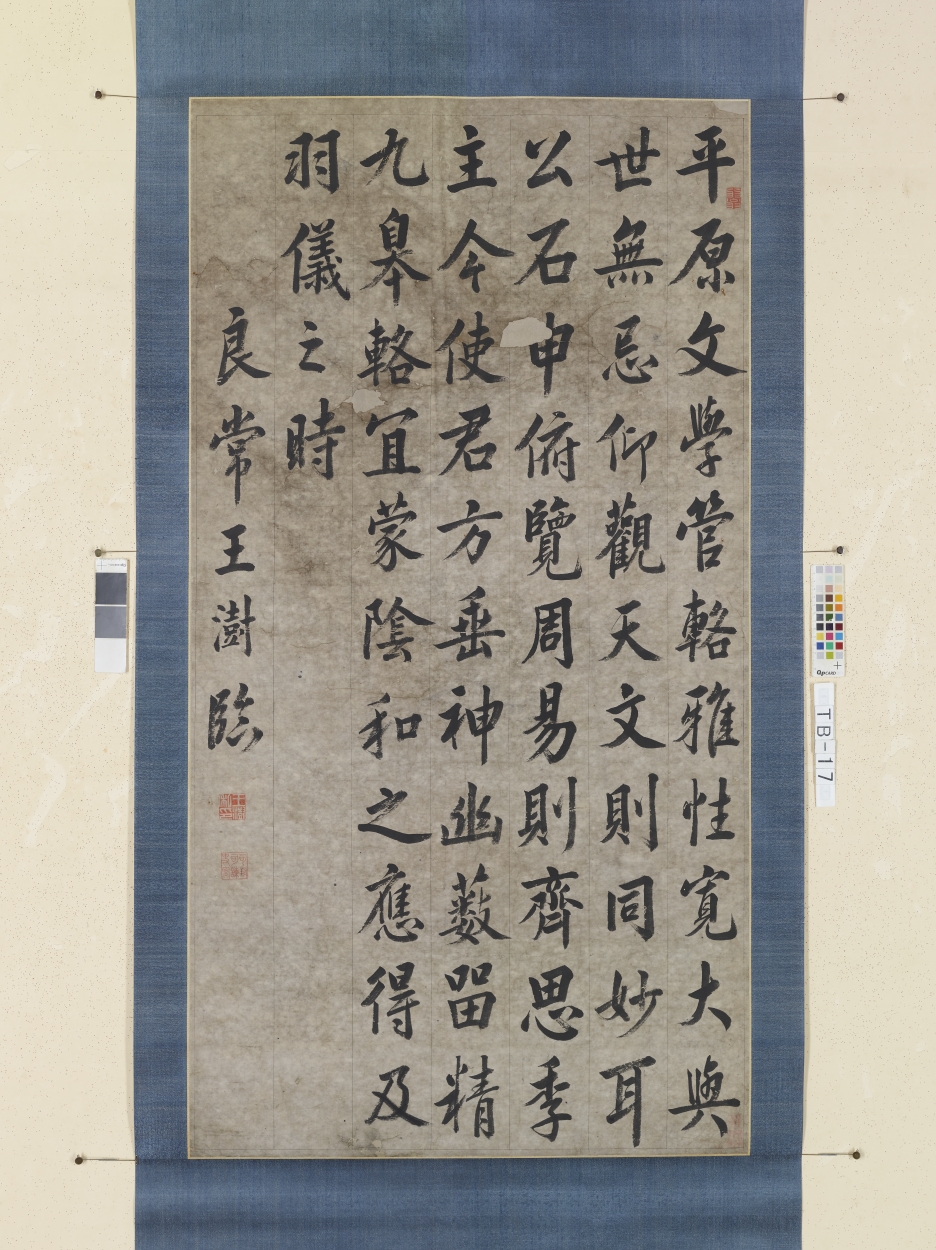 平原文學管輅雅性寬大與
世無忌仰觀天文則同妙耳
公石申俯覽周易則齊思季
主今使君方垂神幽藪留精
九皋輅宜蒙陰和之應得及
羽儀之時
良常王澍臨
QPCARD
TB-17